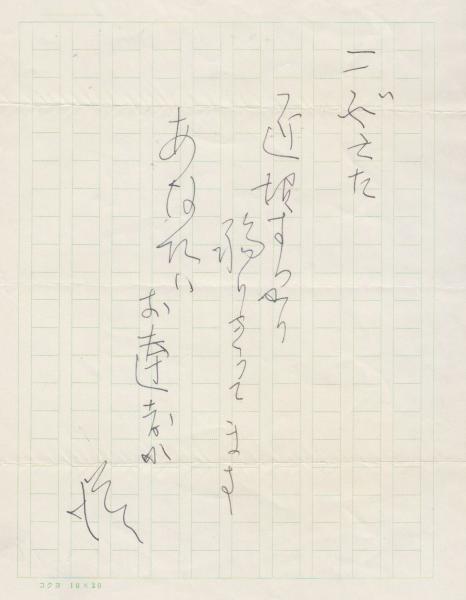 ごぶさた
近頃すっかり
弱りきって
ます
あなたは
お達者か
コクヨ 10×20